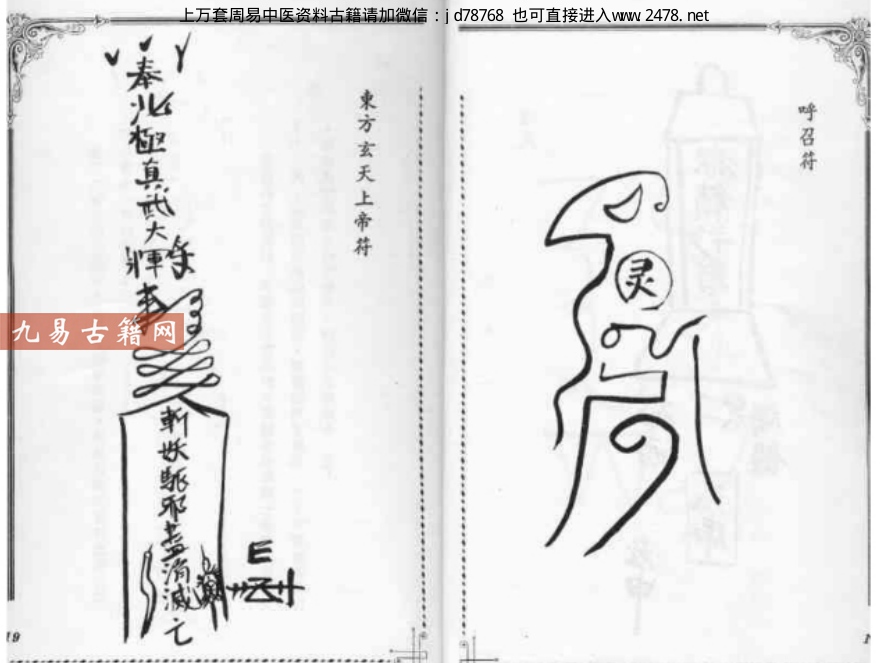 上万套周易中医资料古籍请加微信：jd78768 也可直接进入www.2478.net
呼召符
灵
東方玄天上帝符
奉北極真武大
斬妖驅邪盡消滅亡
九易古籍网
19